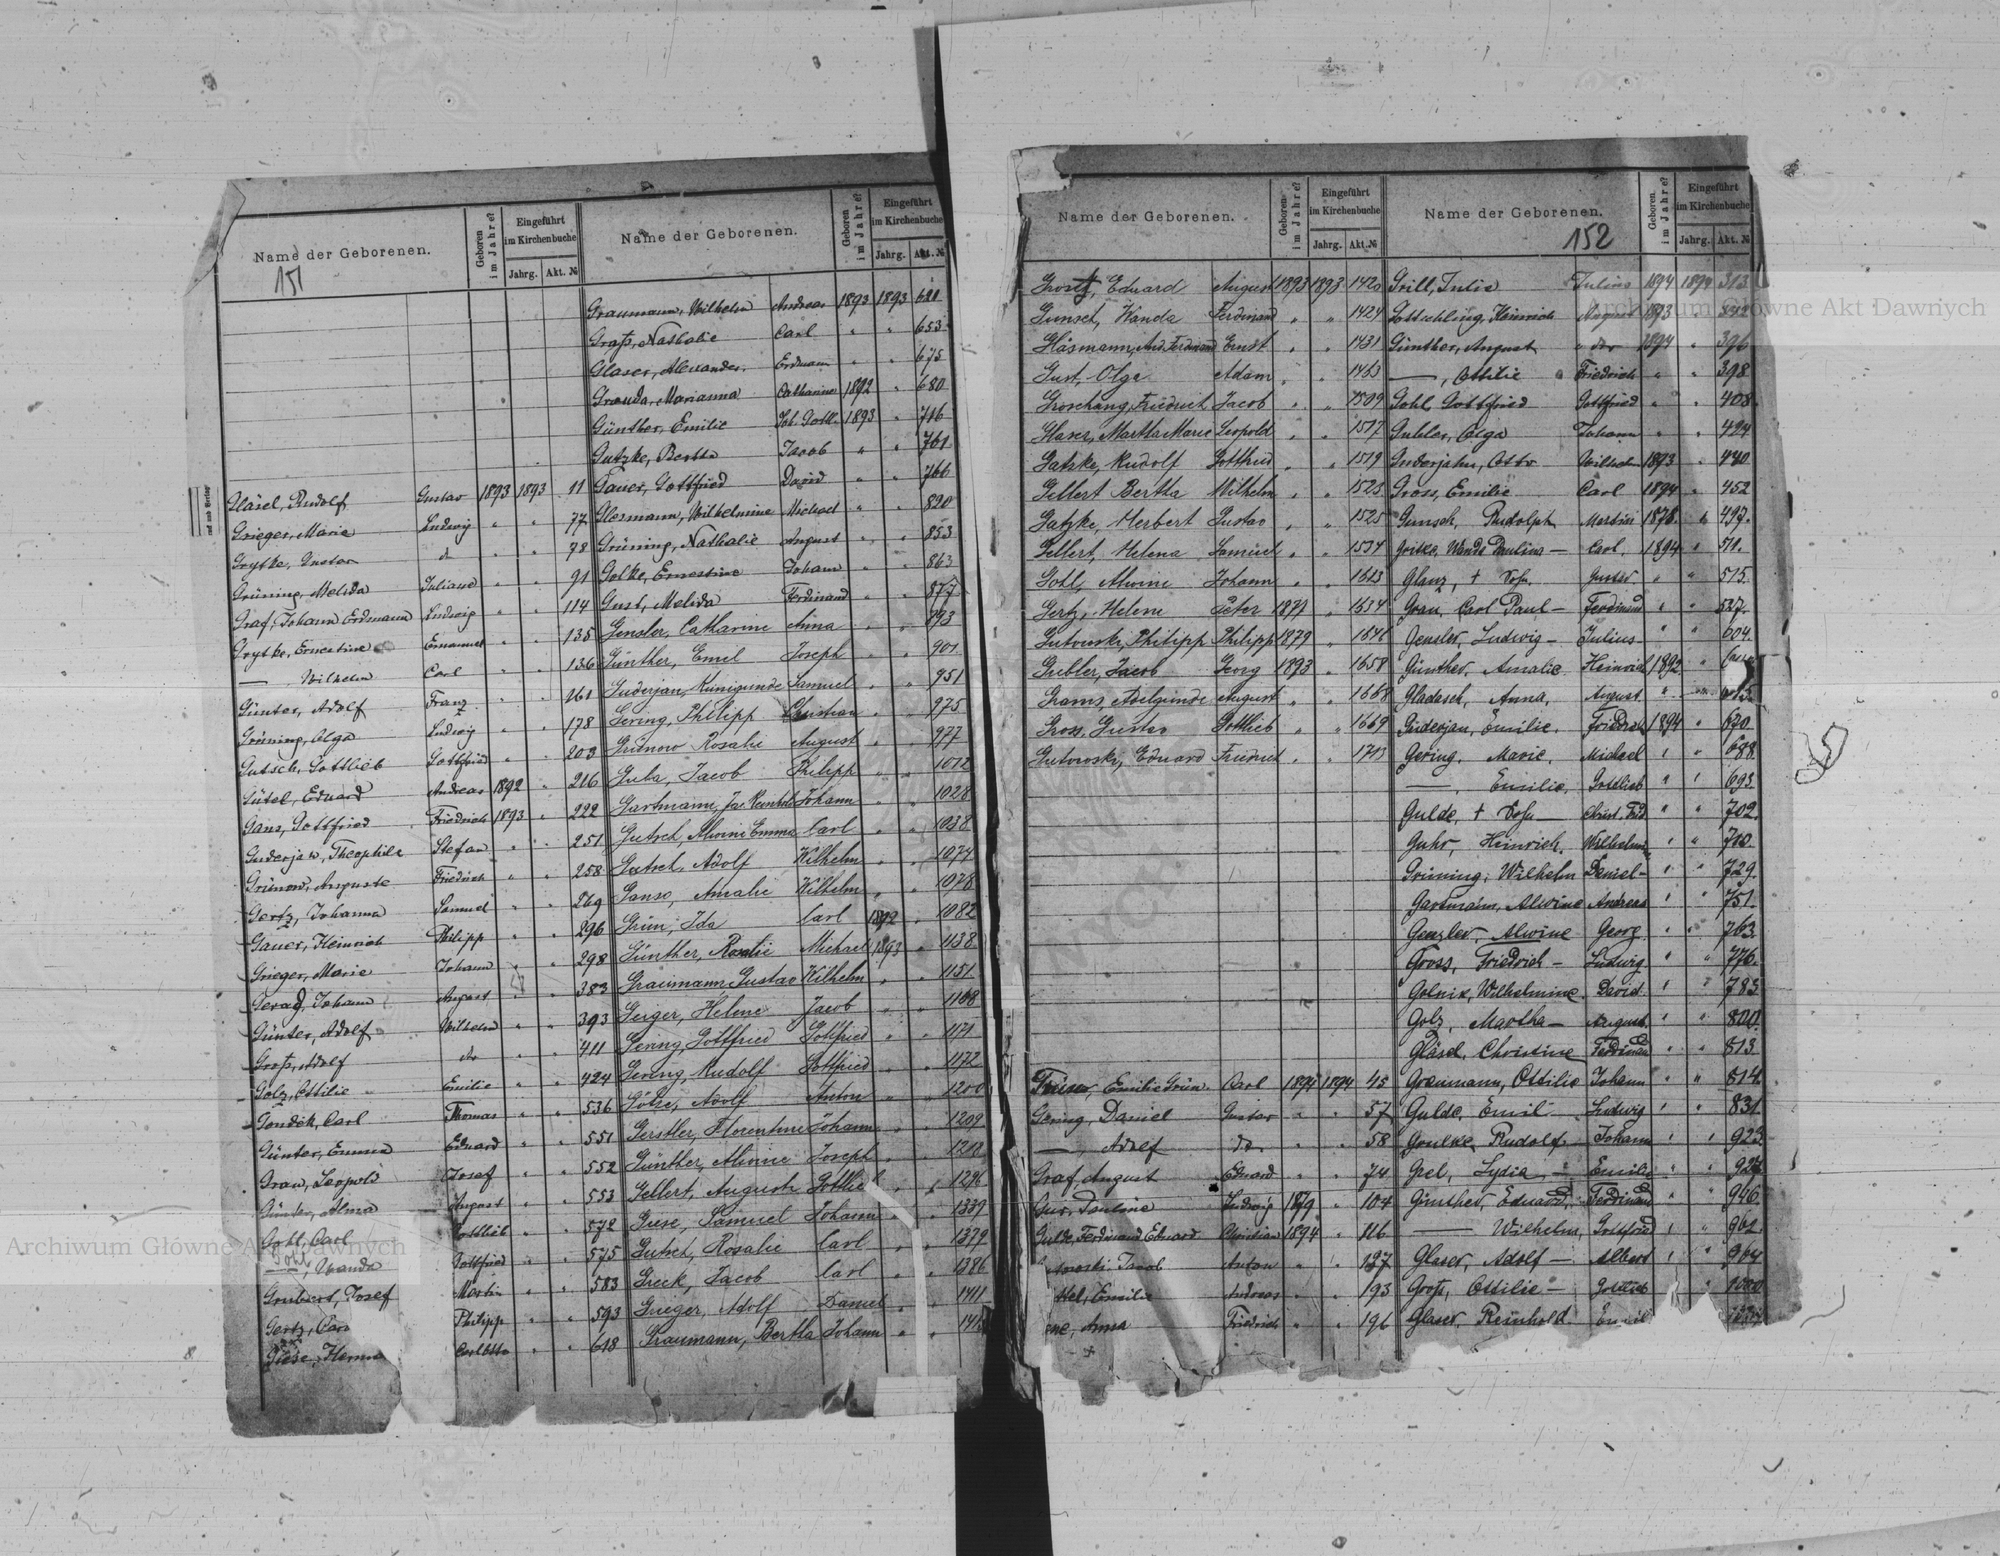 Name der Geborenen.
Geboren im Jahre?
Eingeführt im Kirchenbuche
Jahrg. Akt. №
Name der Geborenen.
Geboren im Jahre?
Eingeführt im Kirchenbuche
Jahrg. Akt. №
151
Gläsel, Rudolf Gustav 1893 1893 11
Grieger, Marie Ludwig " " 77
Grytke, Gustav do " " 78
Grüning, Melida Juliane " " 91
Graf, Johann Erdmann Ludwig " " 114
Grytke, Ernestine Emanuel " " 135
— Wilhelm Carl " " 136
Günter, Adolf Franz " " 161
Grüning, Olga Ludwig " " 178
Gutsch, Gottlieb Gottfried " " 203
Gütel, Eduard Andreas 1892 " 216
Gans, Gottfried Friedrich 1893 " 222
Guderjan, Theophile Stefan " " 251
Grünow, Auguste Friedrich " " 258
Gertz, Johanna Samuel " " 269
Gauer, Heinrich Philipp " " 296
Grieger, Marie Johann " " 298
Johann August " " 383
Günter, Adolf Wilhelm " " 393
Groß, Adolf do " " 411
Golz, Ottilie Emilie " " 424
Gondek, Carl Thomas " " 536
Günter, Emma Eduard " " 551
Grau, Leopold Josef " " 552
Günter, Alma August " " 553
Gohl, Carl Gottlieb " " 572
Gohl, Wanda Gottfried " " 575
Josef Martin " " 583
Gertz, Philipp " " 593
Giese, " " 618
Graumann, Wilhelm Andreas 1893 1893 621
Groß, Nathalie Carl " " 653
Glaser, Alexander Erdmann " " 675
Marianna Catharine 1892 " 680
Günther, Emilie Joh. Gottl. 1893 " 716
Gutzke, Bertha Jacob " " 761
Gauer, Gottfried David " " 766
Glesmann, Wilhelmine Michael " " 820
Grüning, Nathalie August " " 853
Golke, Ernestine Johann " " 863
Gust, Melida Ferdinand " " 877
Gensler, Catharine Anna " " 893
Günther, Emil Joseph " " 901
Guderjan, Kunigunde Samuel " " 951
Gering, Philipp Christian " " 975
Grünow Rosalie August " " 977
Guba, Jacob Philipp " " 1012
Gartmann, Jac. Reinhold Johann " " 1028
Gutsch, Alwine Emma Carl " " 1038
Gutsch, Adolf Wilhelm " " 1074
Ganso, Amalie Wilhelm " " 1078
Grün, Ida Carl 1892 " 1082
Günther, Rosalie Michael 1893 " 1138
Graumann, Gustav Wilhelm " " 1151
Geiger, Helene Jacob " " 1168
Gering, Gottfried Gottfried " " 1171
Gering, Rudolf Gottfried " " 1172
Götze, Adolf Anton " " 1200
Gerstler, Florentine Johann " " 1209
Günther, Alwine Joseph " " 1218
Gellert, Auguste Gottlieb " " 1296
Giese, Samuel Johann " " 1339
Gutsch, Rosalie Carl " " 1379
Greek, Jacob Carl " " 1386
Grieger, Adolf Daniel " " 1411
Graumann, Bertha Johann " "
Name der Geborenen.
Geboren im Jahre?
Eingeführt im Kirchenbuche
Jahrg. Akt. №
Name der Geborenen.
Geboren im Jahre?
Eingeführt im Kirchenbuche
Jahrg. Akt. №
152
Eduard August 1893 1893 1420
Gunsch, Wanda Ferdinand " " 1424
Ferdinand Ernst " " 1431
Gust, Olga Adam " " 1463
Groschang, Friedrich Jacob " " 1509
Glaser, Martha Marie Leopold " " 1517
Gatzke, Rudolf Gottfried " " 1519
Gellert Bertha Wilhelm " " 1523
Gatzke, Herbert Gustav " " 1525
Gellert, Helena Samuel " " 1534
Gohl, Alwine Johann " " 1613
Gertz, Helene Peter 1877 " 1634
Gutowski, Philipp Philipp 1879 " 1646
Giebler, Jacob Georg 1893 " 1658
Grams, Adelgunde August " " 1668
Gross, Gustav Gottlieb " " 1669
Gutowski, Eduard Friedrich " " 1713
Emilie Grün Carl 1894 1894 45
Gering, Daniel Gustav " " 57
—, Adolf do " " 58
Graf, August Eduard " " 74
Gur, Pauline Ludwig 1879 " 104
Gulde, Ferdinand Eduard Christian 1894 " 116
Jacob Anton " " 137
Emilie Andreas " " 193
Anna Friedrich " " 196
Grill, Julie Julius 1894 1894 313
Gottschling, Heinrich August 1893 "
Günther, August " do 1894 " 396
—, Ottilie " Friedrich " " 398
Gohl, Gottfried Gottfried " " 408
Guhler, Olga Johann " " 424
Guderjahn, Otto Wilhelm 1893 " 440
Gross, Emilie Carl 1894 " 452
Gunsch, Rudolph Martin 1878 " 497.
Wanda Pauline — Carl. 1894 " 511.
Glanz, + Sohn Gustav " " 515.
Grau, Carl Paul — Ferdinand " " 527.
Gensler, Ludwig — Julius " " 604
Günther, Amalie Heinrich 1892 "
Gladasch, Anna, August " " 615.
Guderjan, Emilie. Friedrich 1894 " 670.
Gering, Marie, Michael " " 688.
—, Emilie, Gottlieb " " 693.
Gulde, + Sohn — Christ. Frd " " 702.
Guhr, Heinrich, Wilhelm " " 710.
Grüning, Wilhelm Daniel — " " 729.
Gartmann, Alwine Andreas " " 751.
Genzler, Alwine Georg " " 763.
Gross, Friedrich — Ludwig " " 776.
Golnik, Wilhelmine David " " 783.
Golz, Martha — August " " 800.
Gläsel, Christine Ferdinand " " 813.
Graumann, Ottilie Johann " " 814.
Gulde, Emil Ludwig " " 831.
Goulke, Rudolf — Johann " " 923.
Lydia — Emilie " " 927.
Günther, Eduard, Ferdinand " " 946.
— Wilhelm, Gottfried " " 961.
Glaser, Adolf — Albert " " 964
Groß, Ottilie — Gottlieb " " 1000
Glaser, Reinhold. Emil
Archiwum Główne Akt Dawnych
Archiwum Główne Akt Dawnych